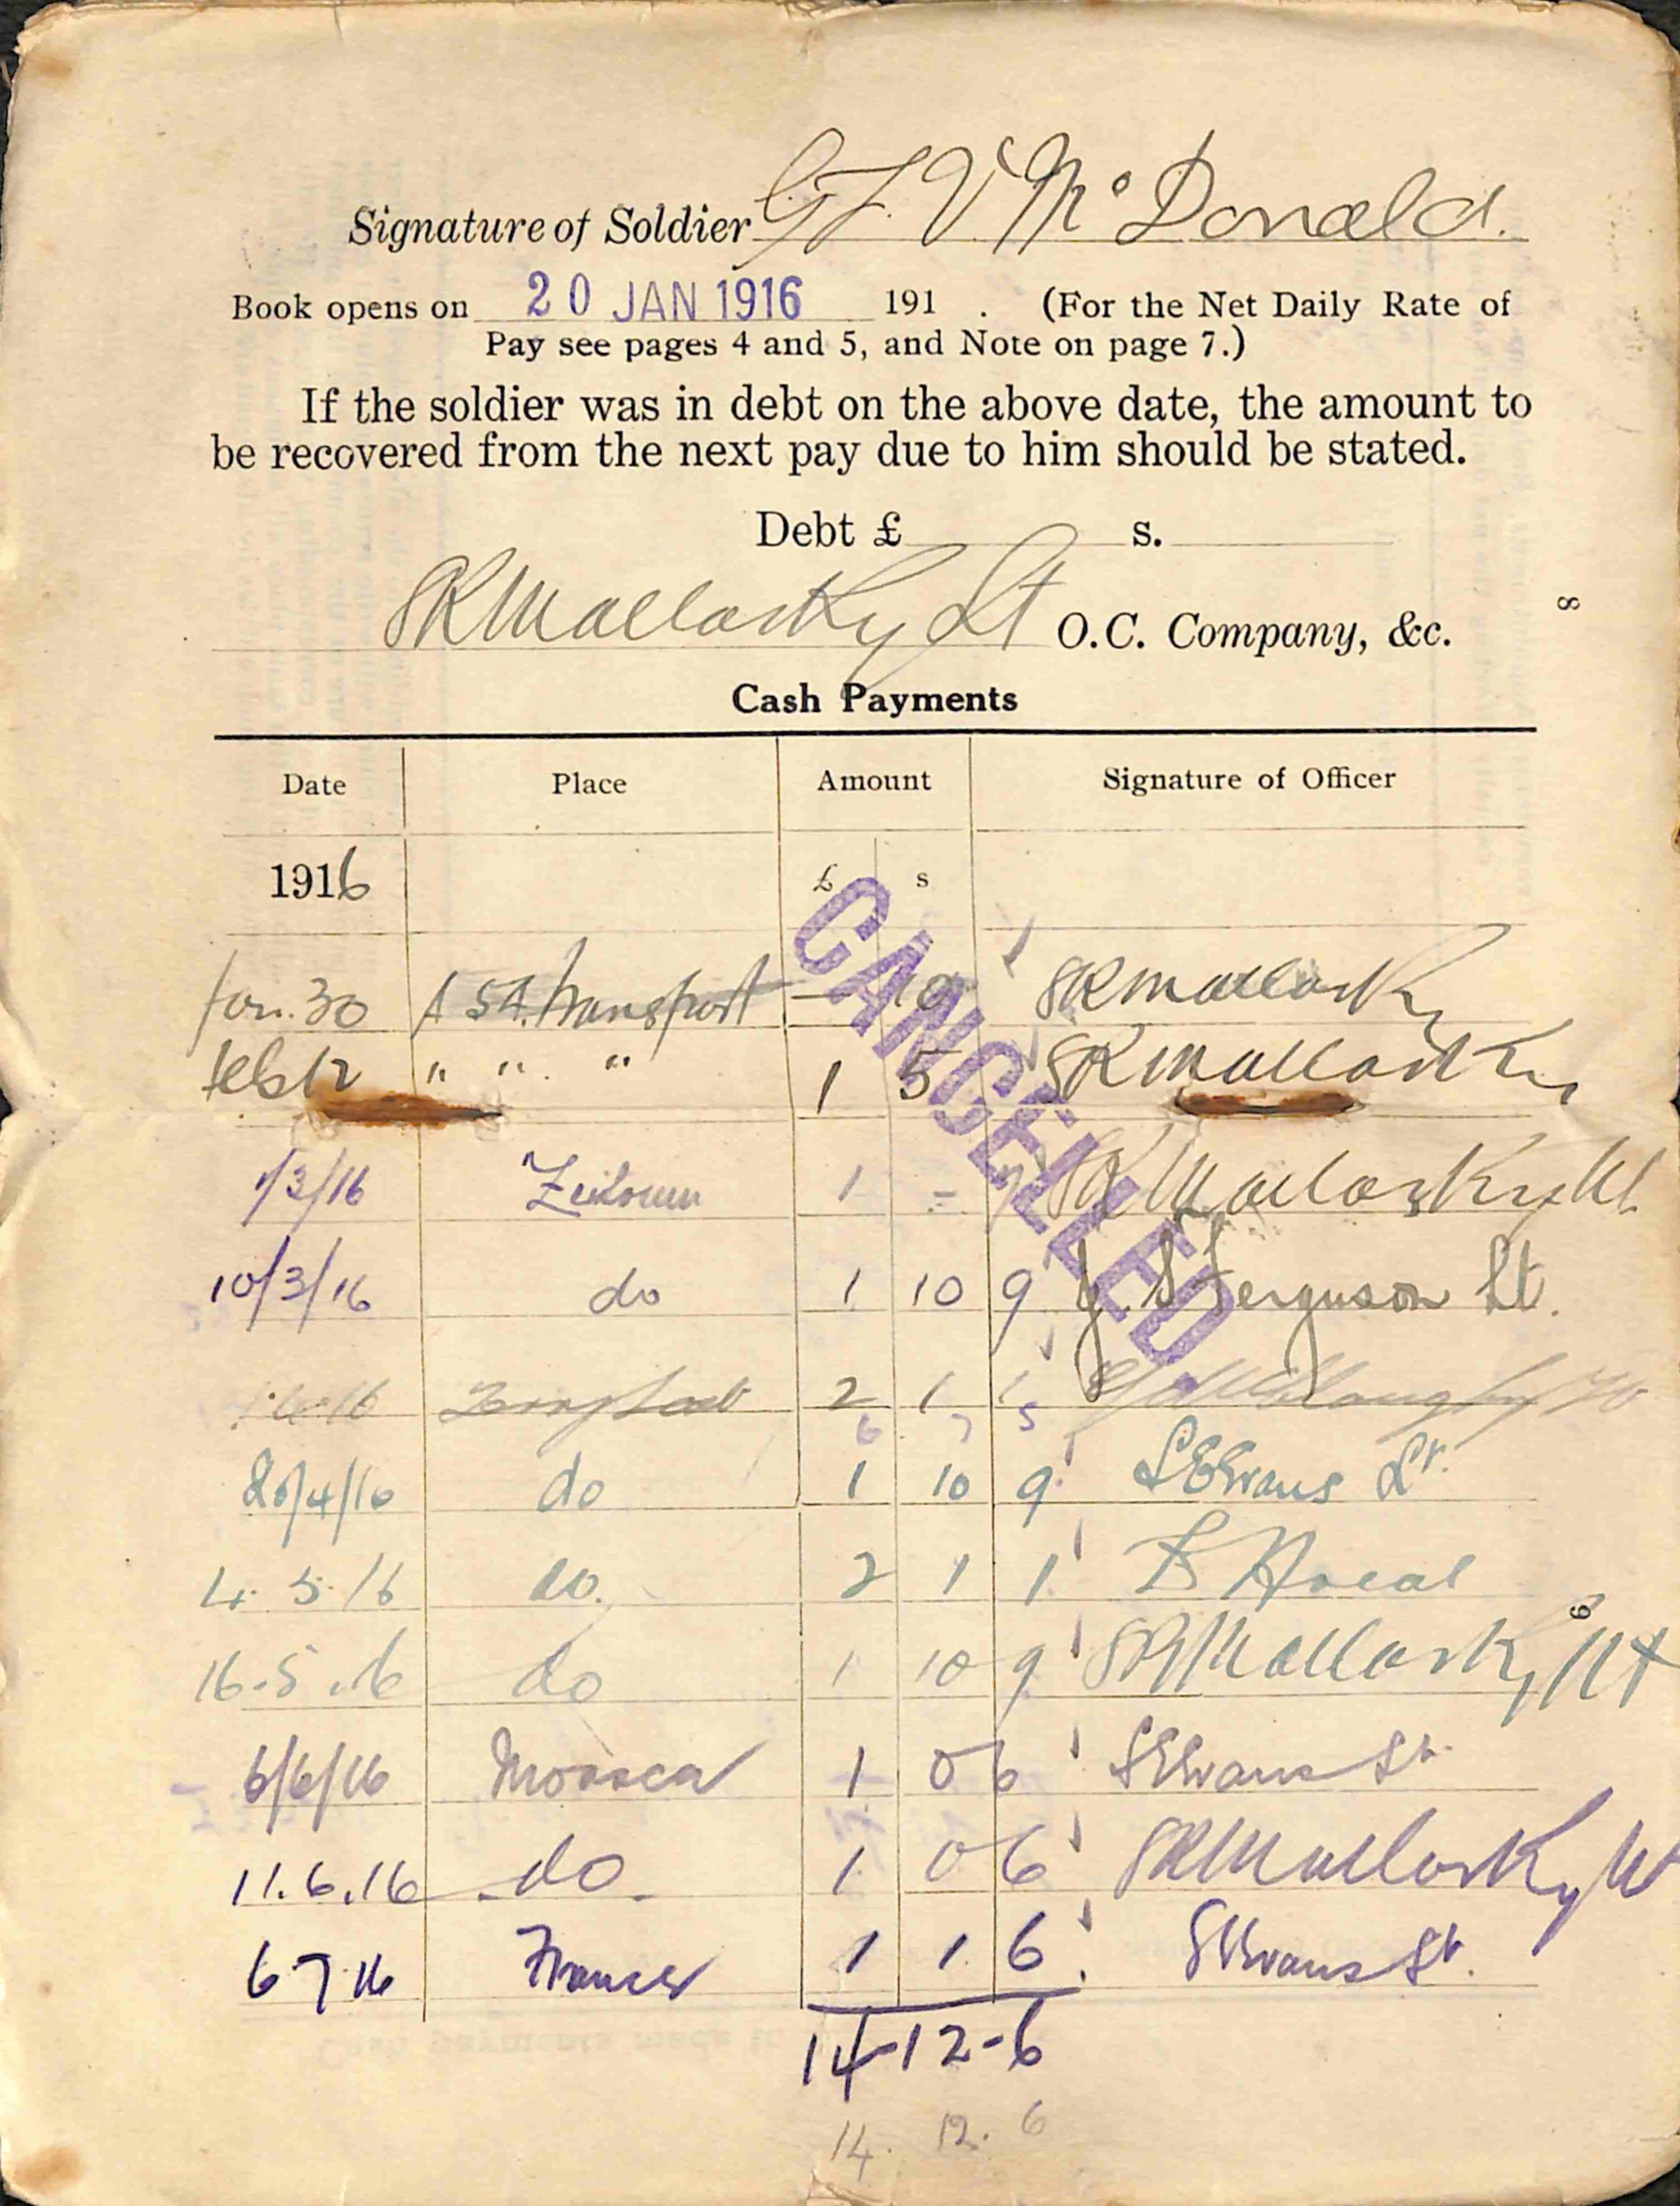 Signature of Soldier G F. V McDonald.
Book opens on 20 JAN 1916 191 . (For the Net Daily Rate of
Pay see pages 4 and 5, and Note on page 7.)
If the soldier was in debt on the above date, the amount to
be recovered from the next pay due to him should be stated.
Debt £ s.
Lt O.C. Company, &c.
8
Cash Payments
Date Place Amount Signature of Officer
1916 £ s
CANCELLED
Jan. 30 Transport — 10
Feb 12 " " " 1 5
1/3/16 Zeitoun 1 -
10/3/16 do 1 10 9 Ferguson Lt.
2 1 1
6 7 5
20/4/16 do 1 10 9 S E Evans Lt.
4. 5. 16 do. 2 1 1
16.5.16 do 1 10 9
6/6/16 Moascar 1 0 6 S E Evans Lt
9
11.6.16 do 1 0 6
6 7 16 France 1 1 6 S E Evans Lt.
14-12-6
14. 12. 6